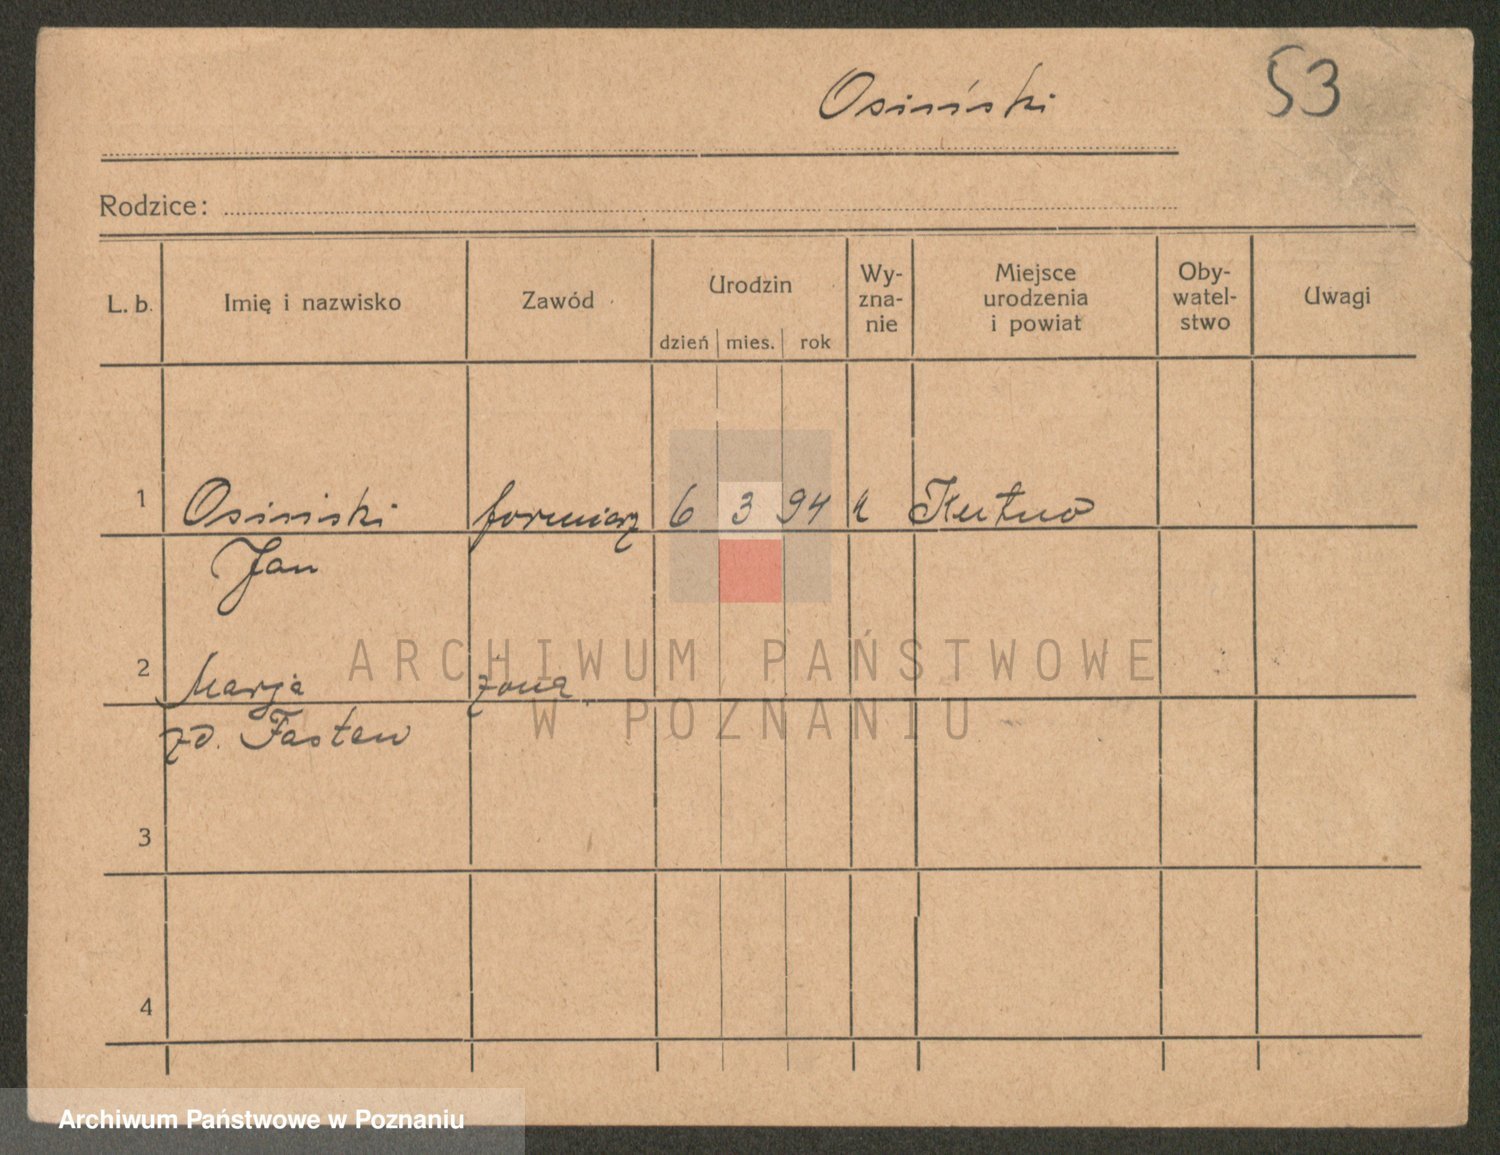 Osiński
53
Rodzice:
L. b. Imię i nazwisko Zawód Urodzin Wy- Miejsce Oby- Uwagi
zna- urodzenia watel-
nie i powiat stwo
dzień mies. rok
1 Osiński formierz 6 3 94 k Kutno
Jan
2 Marja żona
zd. Fasten
3
4
ARCHIWUM PAŃSTWOWE
W POZNANIU
Archiwum Państwowe w Poznaniu